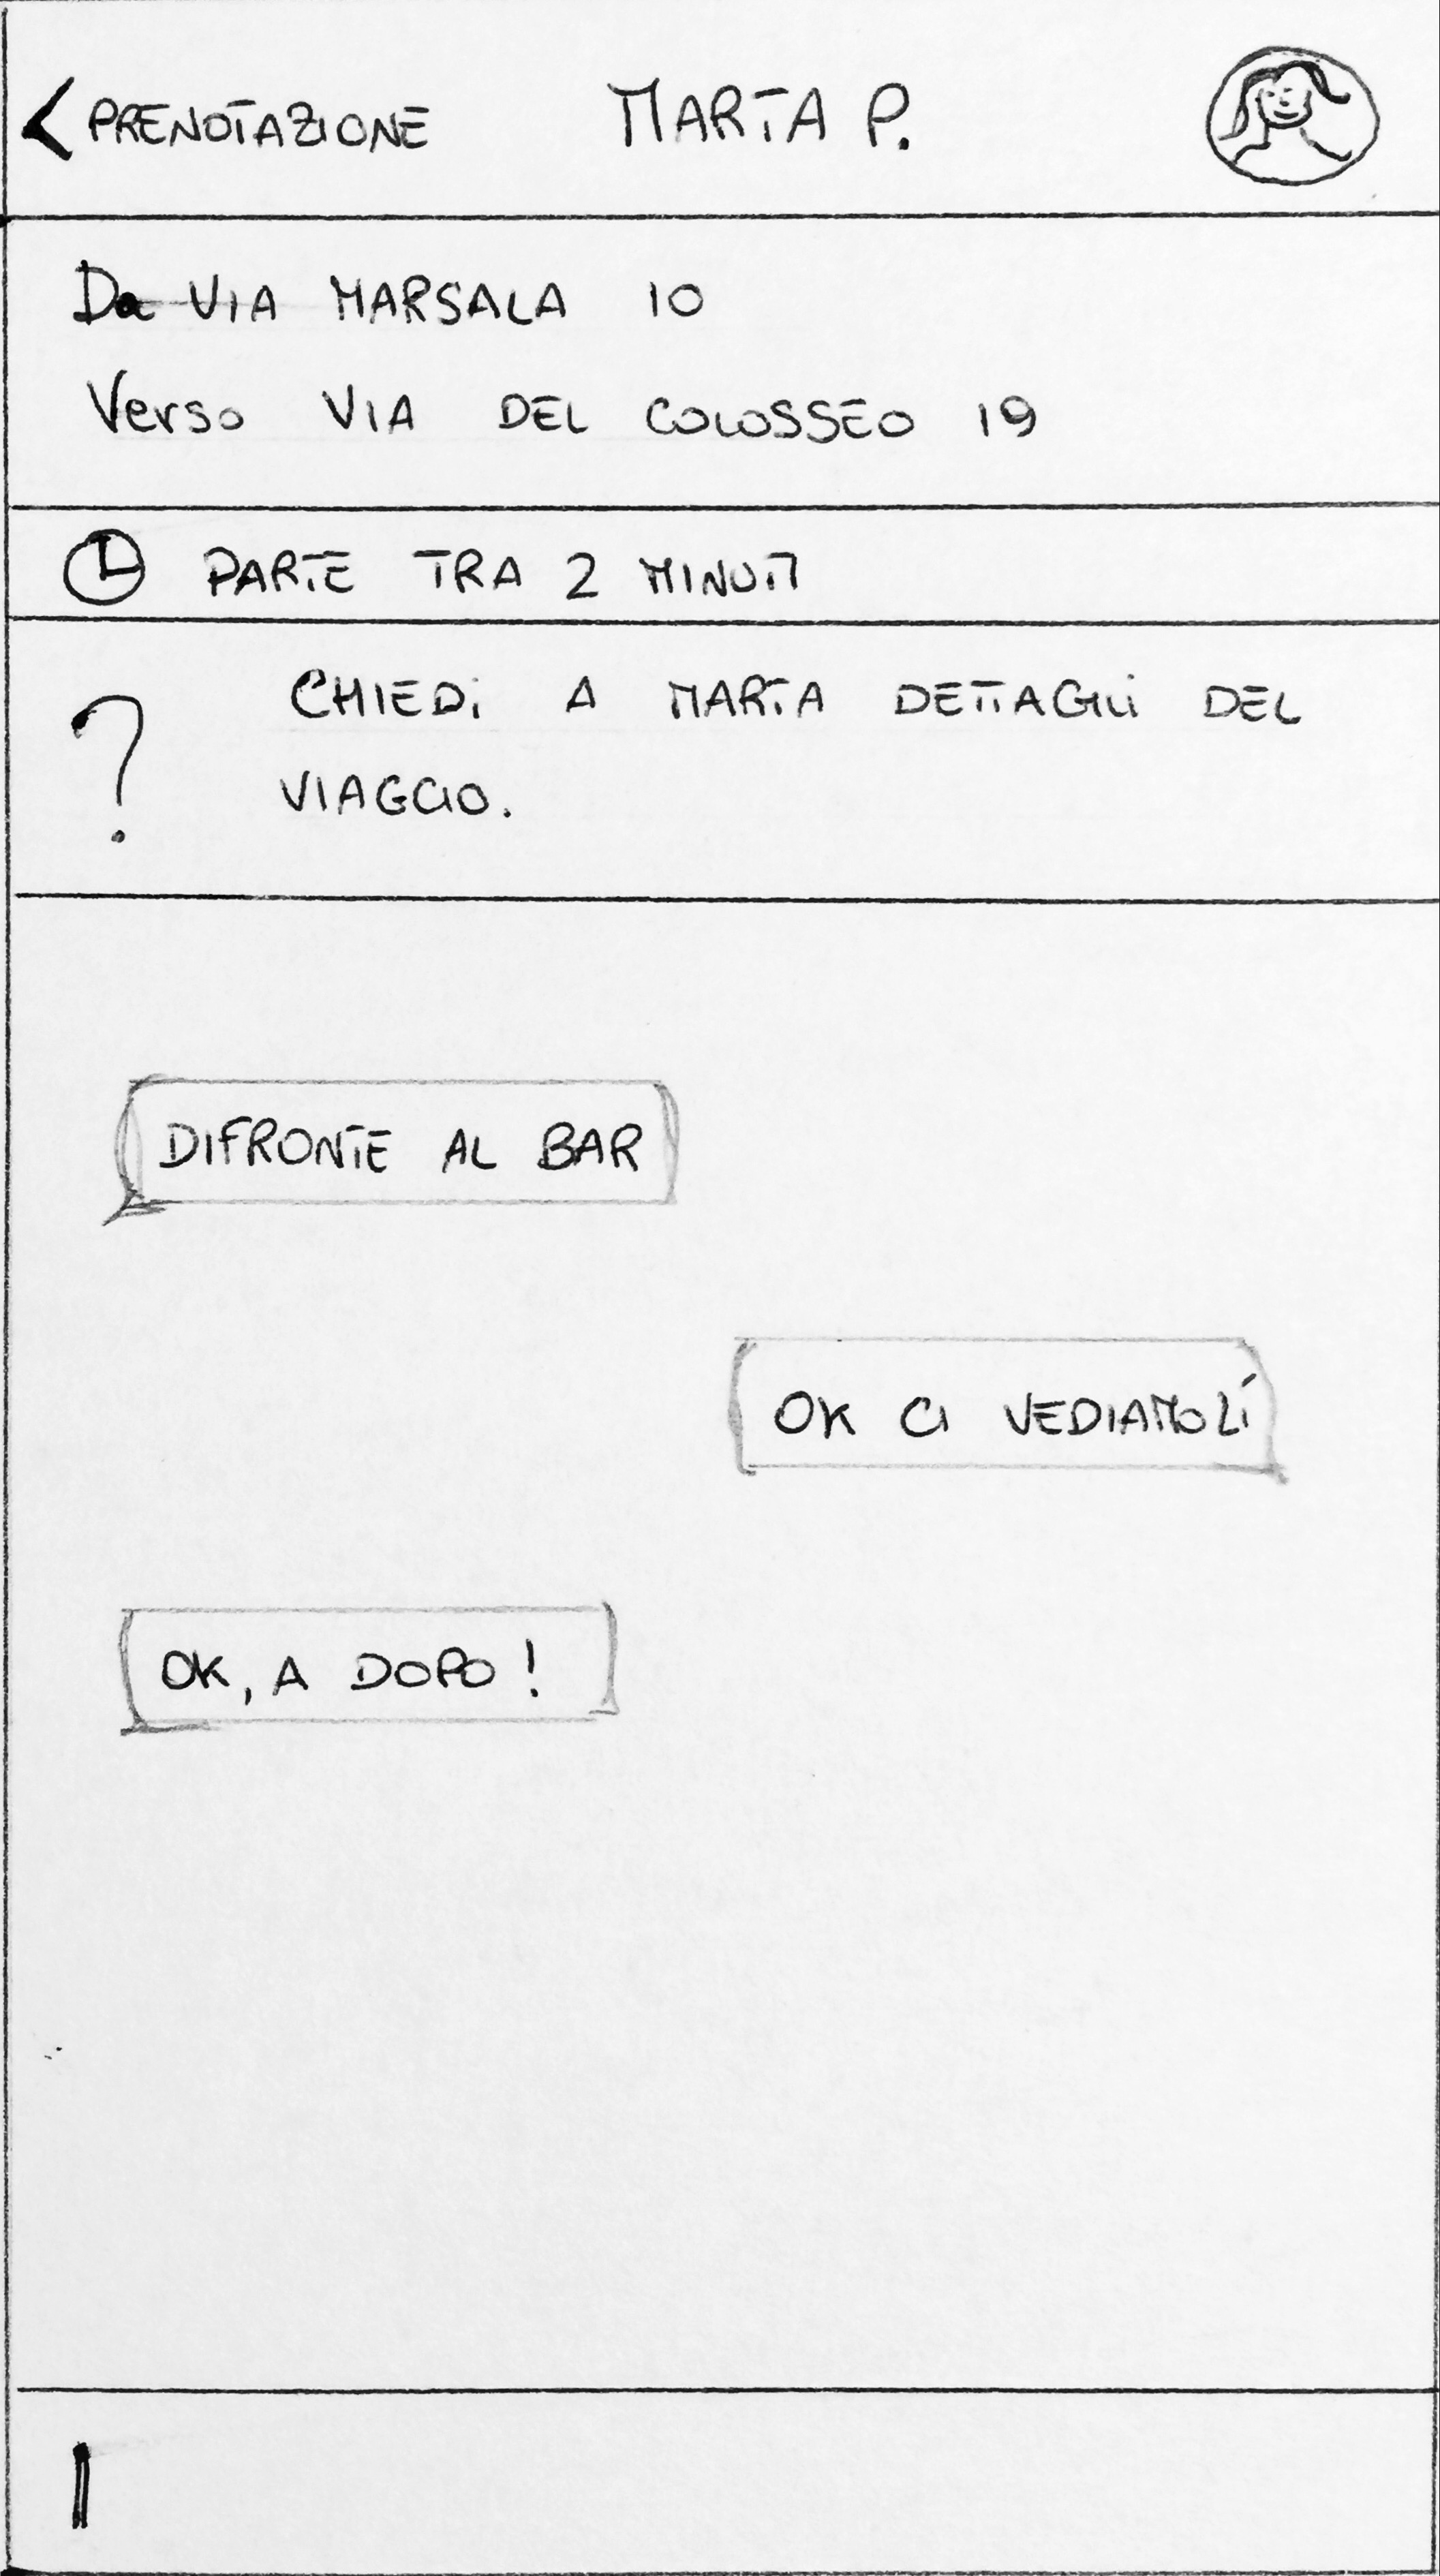 PRENOTAZIONE MARTA P.
Da VIA MARSALA 10
Verso VIA DEL COLOSSEO 19
PARTE TRA 2 MINUTI
CHIEDi A MARTA DETTAGLi DEL
VIAGGIO.
DIFRONTE AL BAR
OK CI VEDIAMO LÍ
OK, A DOPO!